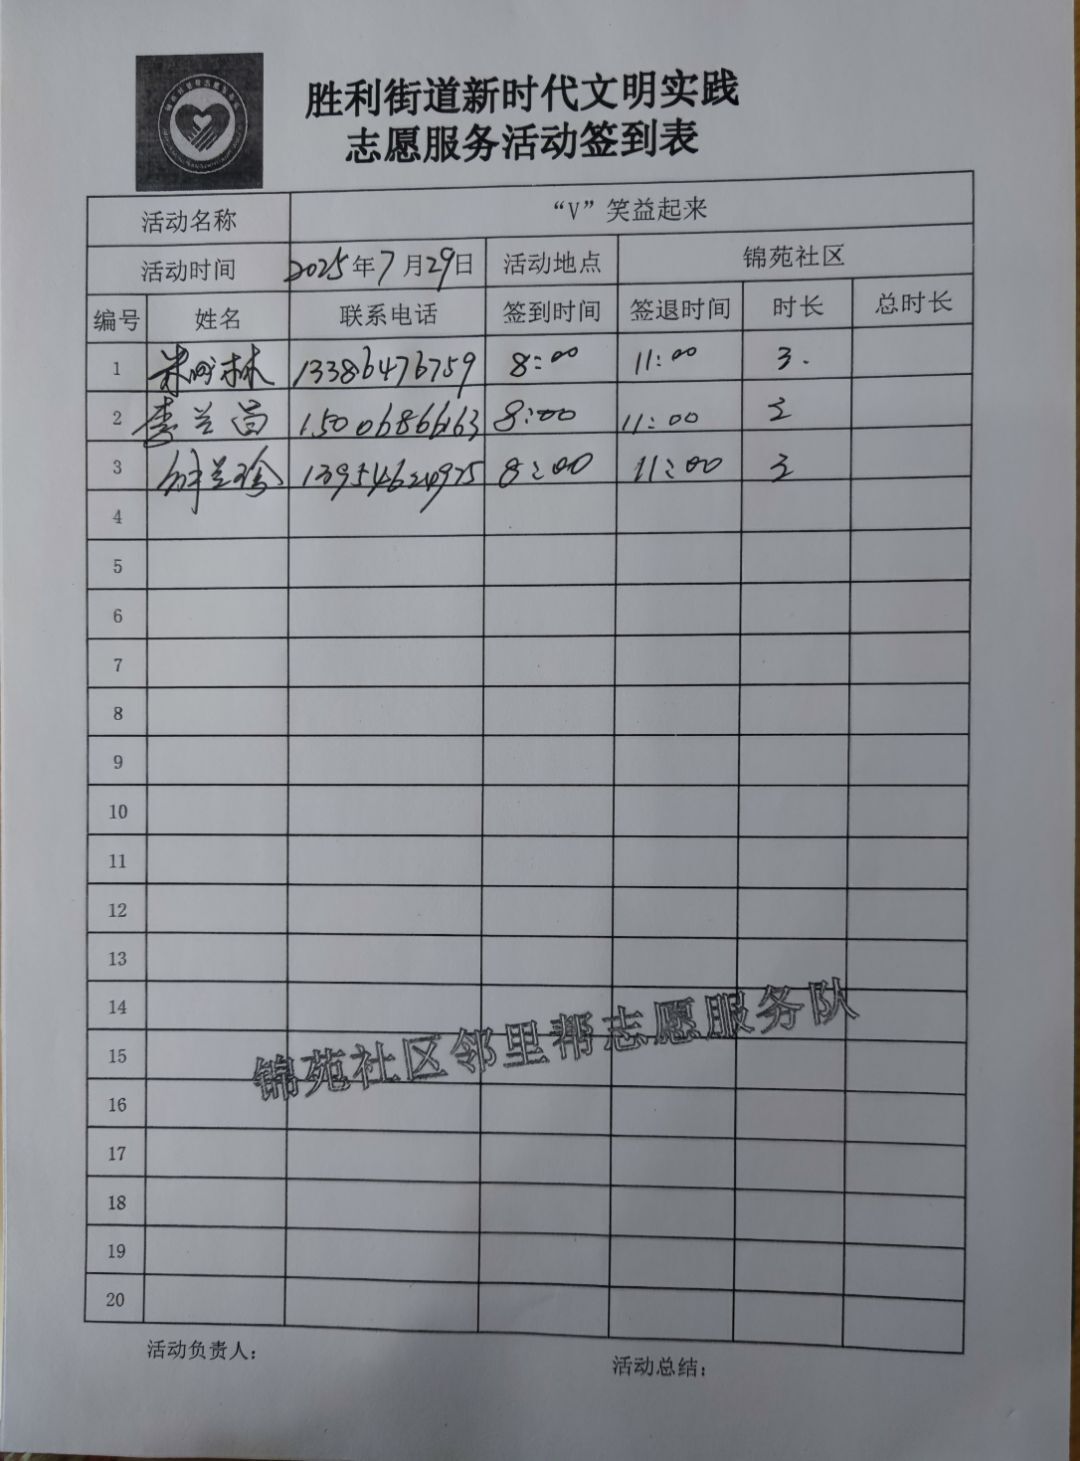 胜利街道新时代文明实践
志愿服务活动签到表
活动名称 “V”笑益起来
活动时间 2025年7月29日 活动地点 锦苑社区
编号 姓名 联系电话 签到时间 签退时间 时长 总时长
1 林 13386476759 8:00 11:00 3.
2 李兰 15006866163 8:00 11:00 3
3 兰珍 13954624975 8:00 11:00 3
4
5
6
7
8
9
10
11
12
13
14
15
16
17
18
19
20
锦苑社区邻里帮志愿服务队
活动负责人:
活动总结: